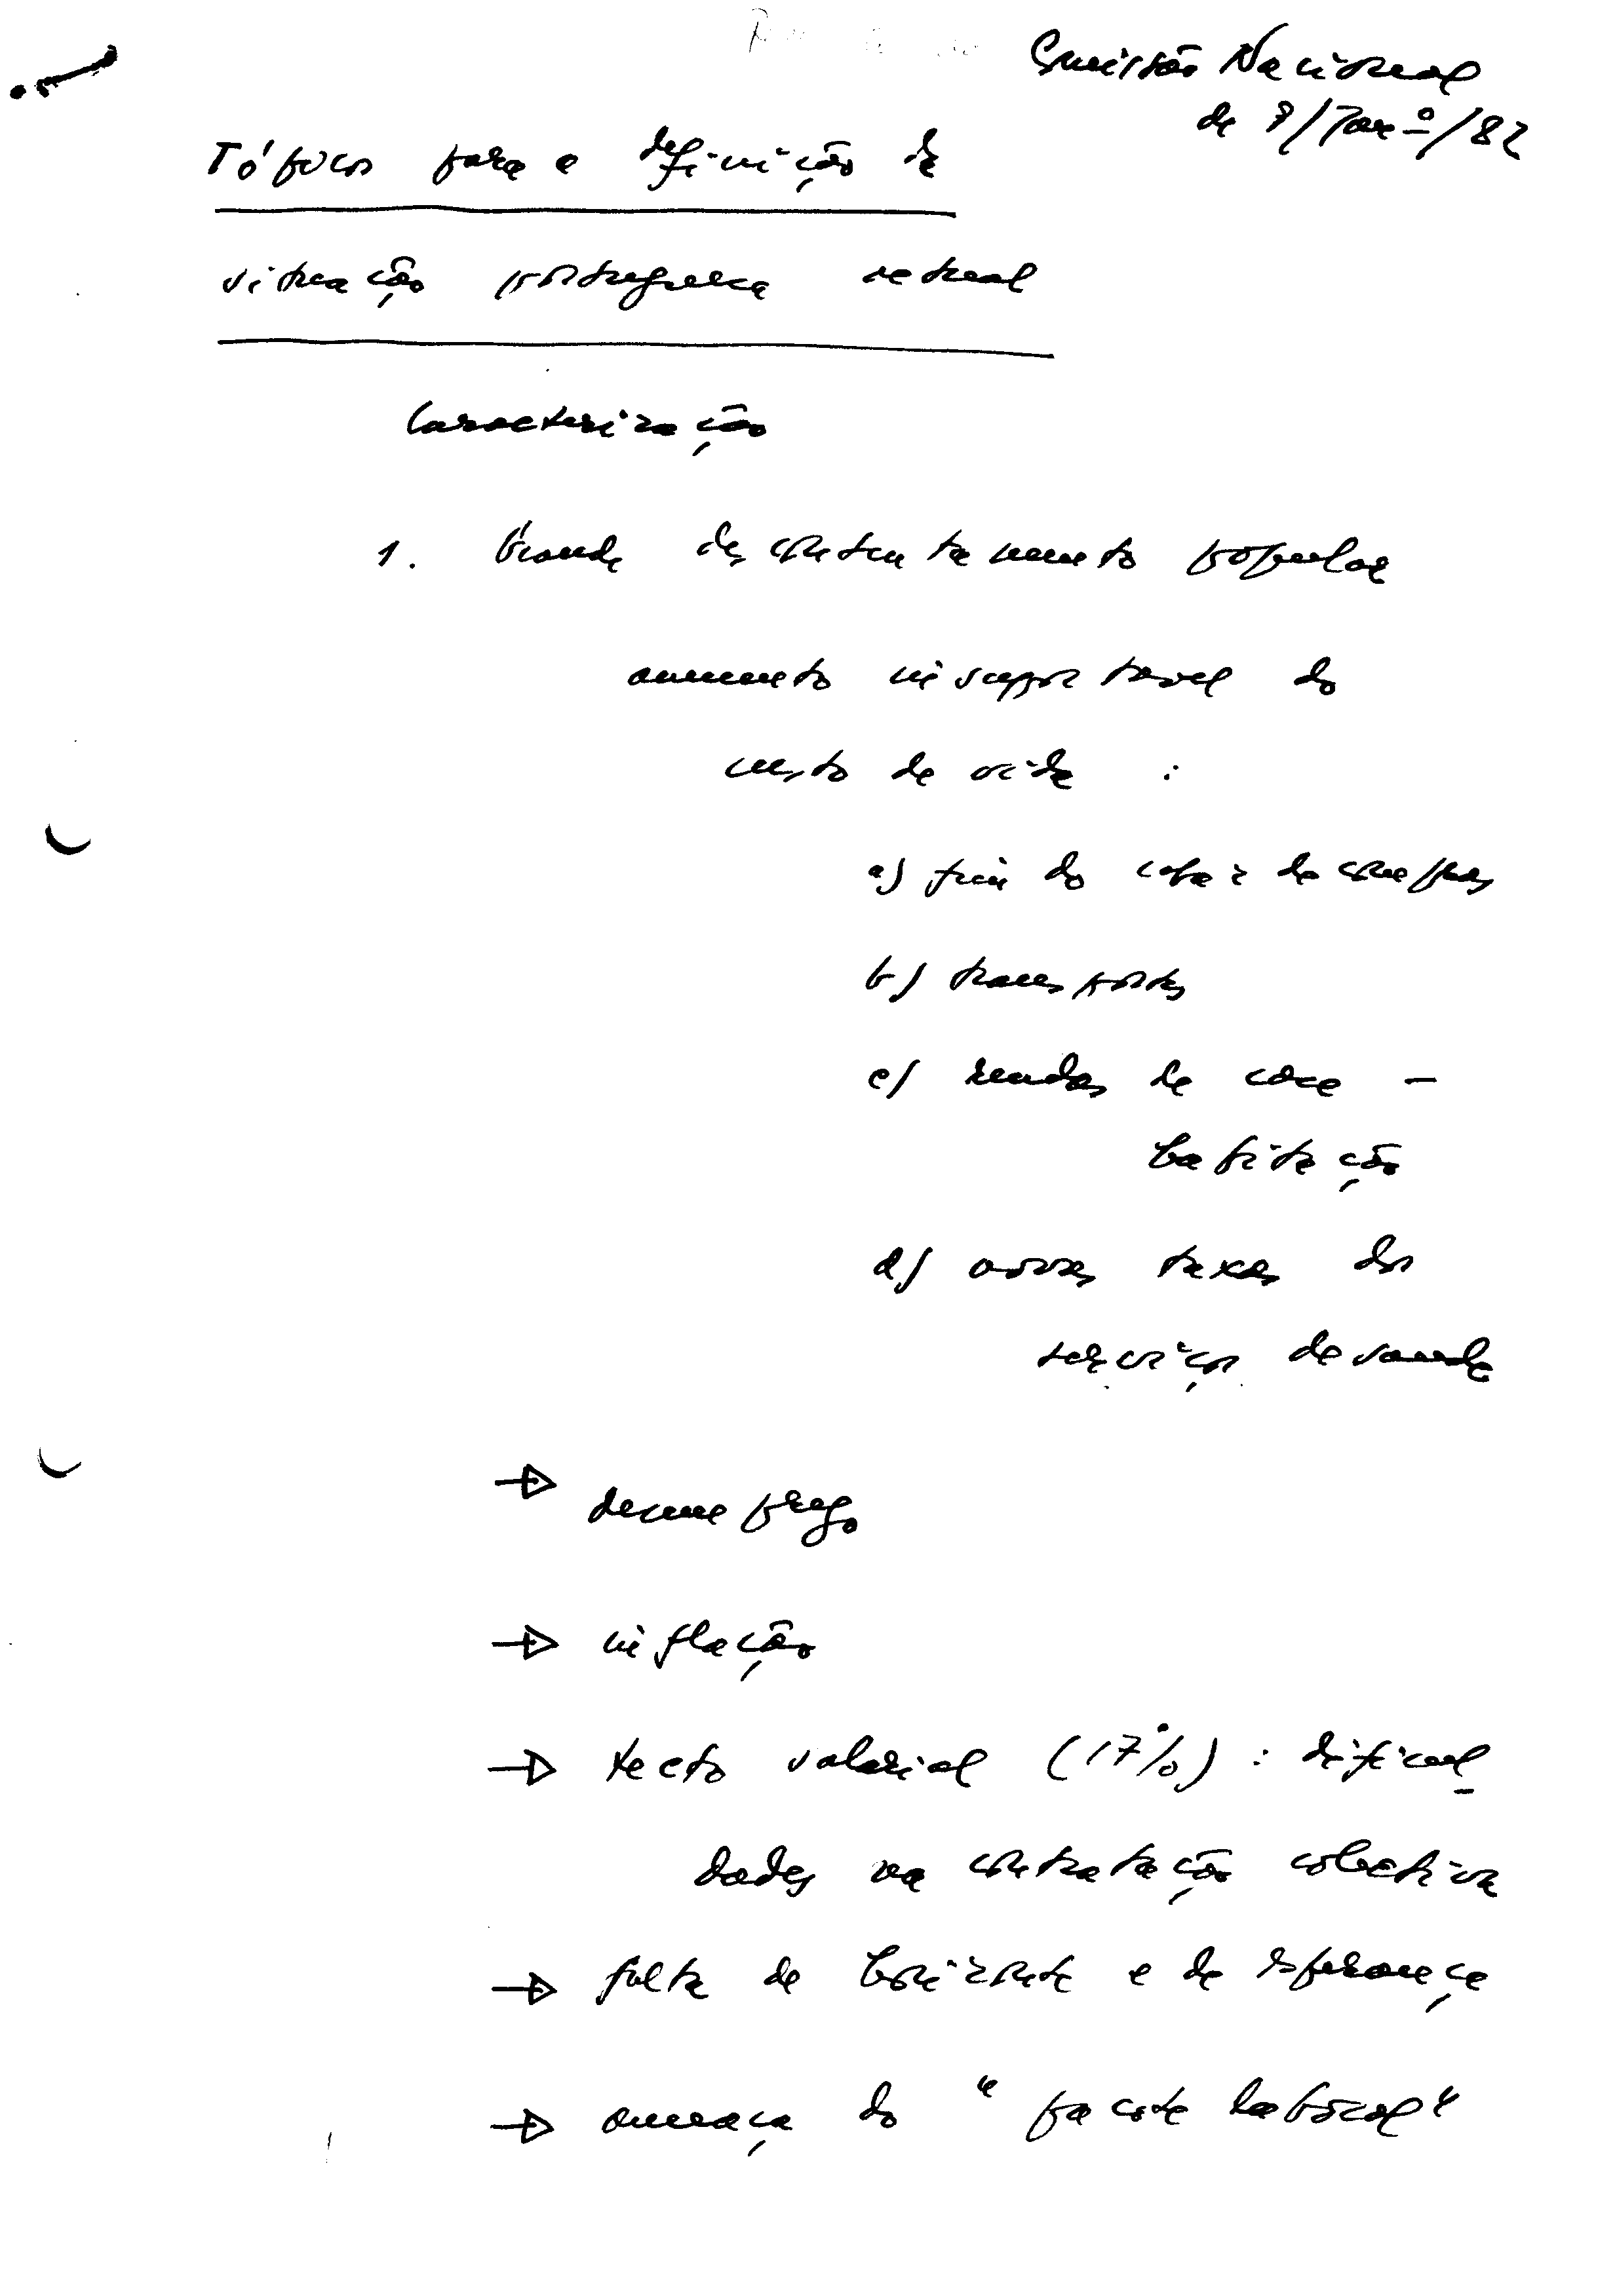 Comissão Nacional
de 7/Jan.º/82
Tópicos para a definição da
situação portuguesa actual
Caracterização
1. Grande descontentamento popular
aumento insuportavel do
custo de vida :
a) fim do cabaz de compras
b) transportes
c) rendas de casa -
habitação
d) novas taxas dos
serviços de saude
→ desemprego
→ inflação
→ tecto salarial (17%) : dificul-
dades na contratação colectiva
→ falta de horizonte e de esperança
→ ameaça do "pacote laboral"